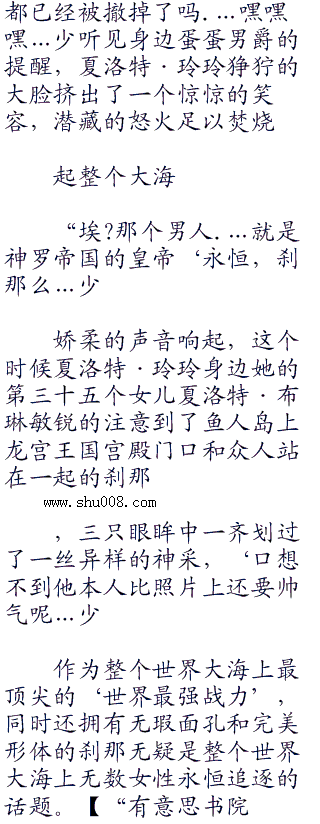 都已经被撤掉了吗....嘿嘿
嘿...少听见身边蛋蛋男爵的
提醒，夏洛特·玲玲狰狞的
大脸挤出了一个惊惊的笑
容，潜藏的怒火足以焚烧
起整个大海
“埃?那个男人....就是
神罗帝国的皇帝‘永恒，刹
那么...少
娇柔的声音响起，这个
时候夏洛特·玲玲身边她的
第三十五个女儿夏洛特·布
琳敏锐的注意到了鱼人岛上
龙宫王国宫殿门口和众人站
在一起的刹那
www.shu008.com
，三只眼眸中一齐划过
了一丝异样的神采，‘口想
不到他本人比照片上还要帅
气呢...少
作为整个世界大海上最
顶尖的‘世界最强战力’，
同时还拥有无瑕面孔和完美
形体的刹那无疑是整个世界
大海上无数女性永恒追逐的
话题。【“有意思书院